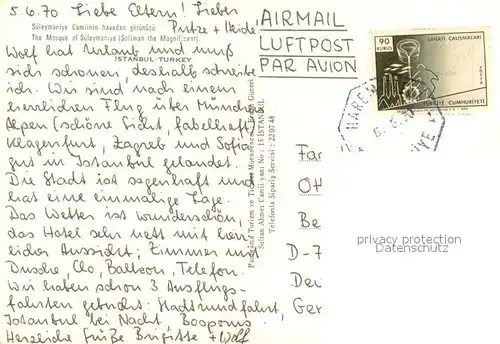 5 6.70 Liebe Eltern! Lieber
Pritze + Heide
Süleymaniye Camiinin havadan görünüşü
The Mosque of Süleymaniye (Soliman the Magnificent).
ISTANBUL-TURKEY
Wolf hat Urlaub und muß
sich schonen deshalb schreibe
ich. Wir sind nach einem
herrlichen Flug über München
Alpen (schöne Sicht, fabelhaft)
Klagenfurt, Zagreb und Sofia
gut in Istanbul gelandet.
Die Stadt ist sagenhaft und
hat eine einmalige Lage.
Das Wetter ist wunderschön,
das Hotel sehr nett mit herr
licher Aussicht; Zimmer mit
Dusche, Clo, Balkon, Telefon.
Wir haben schon 3 Ausflugs-
fahrten gebucht: Stadtrundfahrt,
Istanbul bei Nacht, Bosporus
Herzliche Grüße Brigitte + Wolf
Sultan Ahmet Camii yanı No : 15 İSTANBUL
Telefonla Sipariş Servisi : 22 07 48
AIRMAIL
LUFTPOST
PAR AVION
90
KURUŞ
SANAYİ ÇALIŞMALARI
TÜRKİYE CUMHURİYETİ
HAREM
Fa
Ot
Be
D-7
De
Ger
privacy protection
Datenschutz